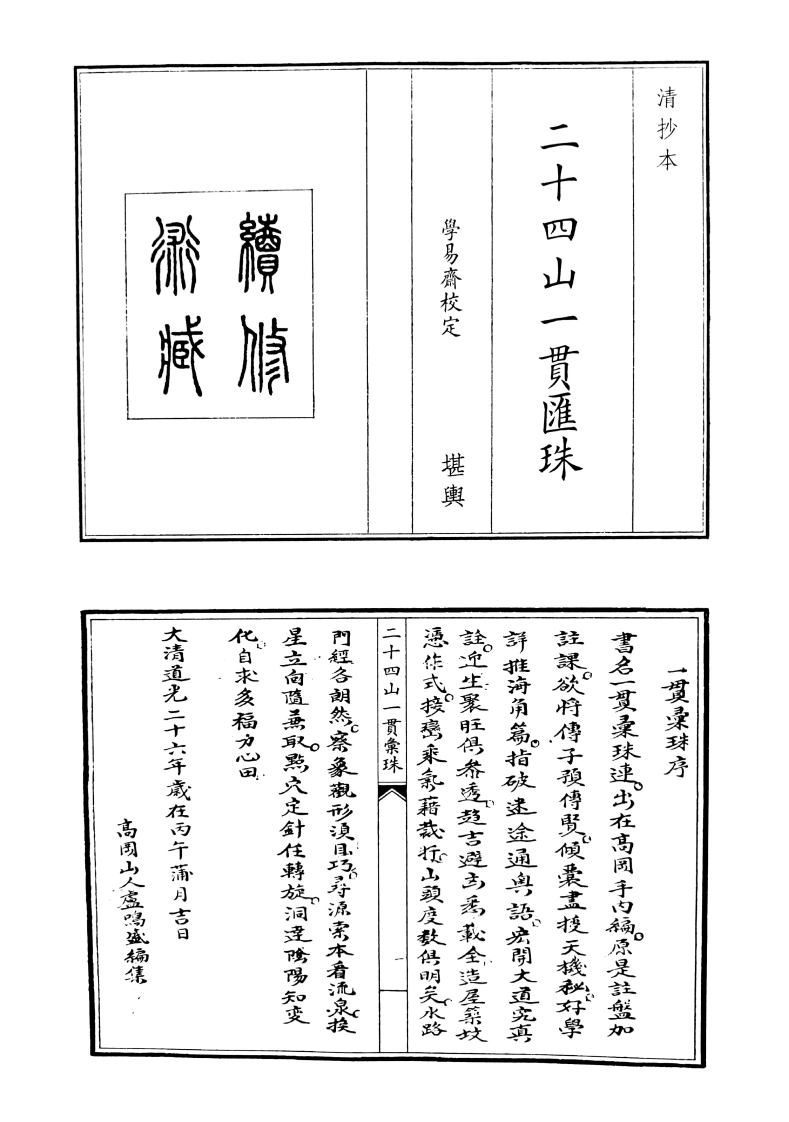 清抄本
二十四山一貫匯珠
學易齋校定　堪輿
續修
術藏
一貫彙珠序
書名一貫彙珠連出在高岡手內編原是註盤加
註課欲將傳子預傳賢傾囊盡授天機秘好學
詳推海角篇指破迷途通輿語宏開大道究真
詮迎生聚旺俱參透趨吉避凶悉載全造屋築坟
憑作式接巒乘氣藉裁行山頭度數俱明矣水路
二十四山一貫彙珠
門經各朗然察象觀形須目巧尋源索本看流泉挨
星立向隨兼取點穴定針任轉旋洞達陰陽知变
化自求多福方心田
大清道光二十六年歲在丙午蒲月吉日
高岡山人盧鳴盛編集